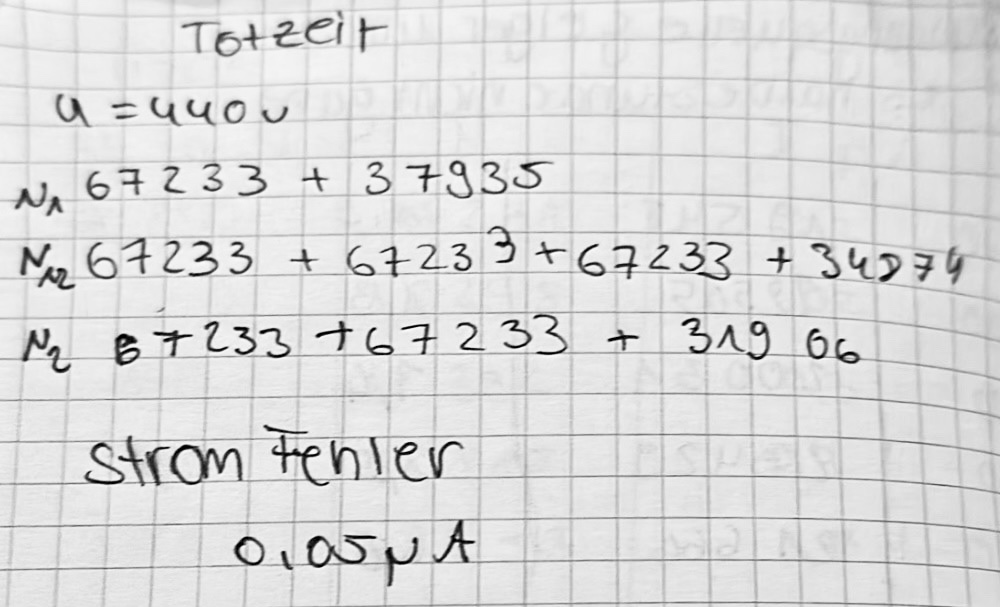 Totzeit
U = 440 V
N1 67233 + 37935
N12 67233 + 67233 + 67233 + 34274
N2 67233 + 67233 + 31906
Strom Fehler
0,05 µA